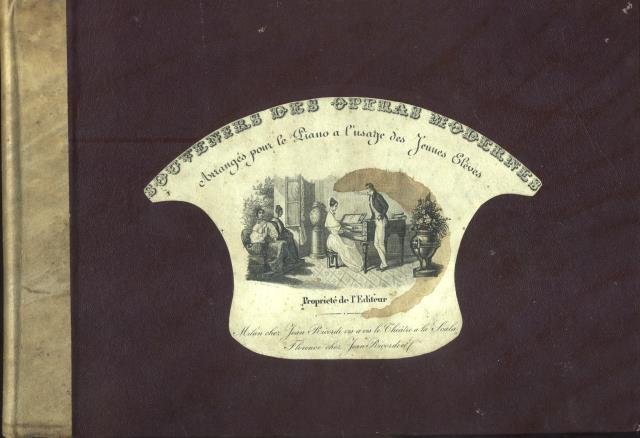 SOUVENIRS DES OPERAS MODERNES
Arrangés pour le Piano a l'usage des Jeunes Elèves
Propriété de l'Editeur
Milan chez Jean Ricordi vis a vis le Théâtre a la Scala
Florence chez Jean Ricordi &